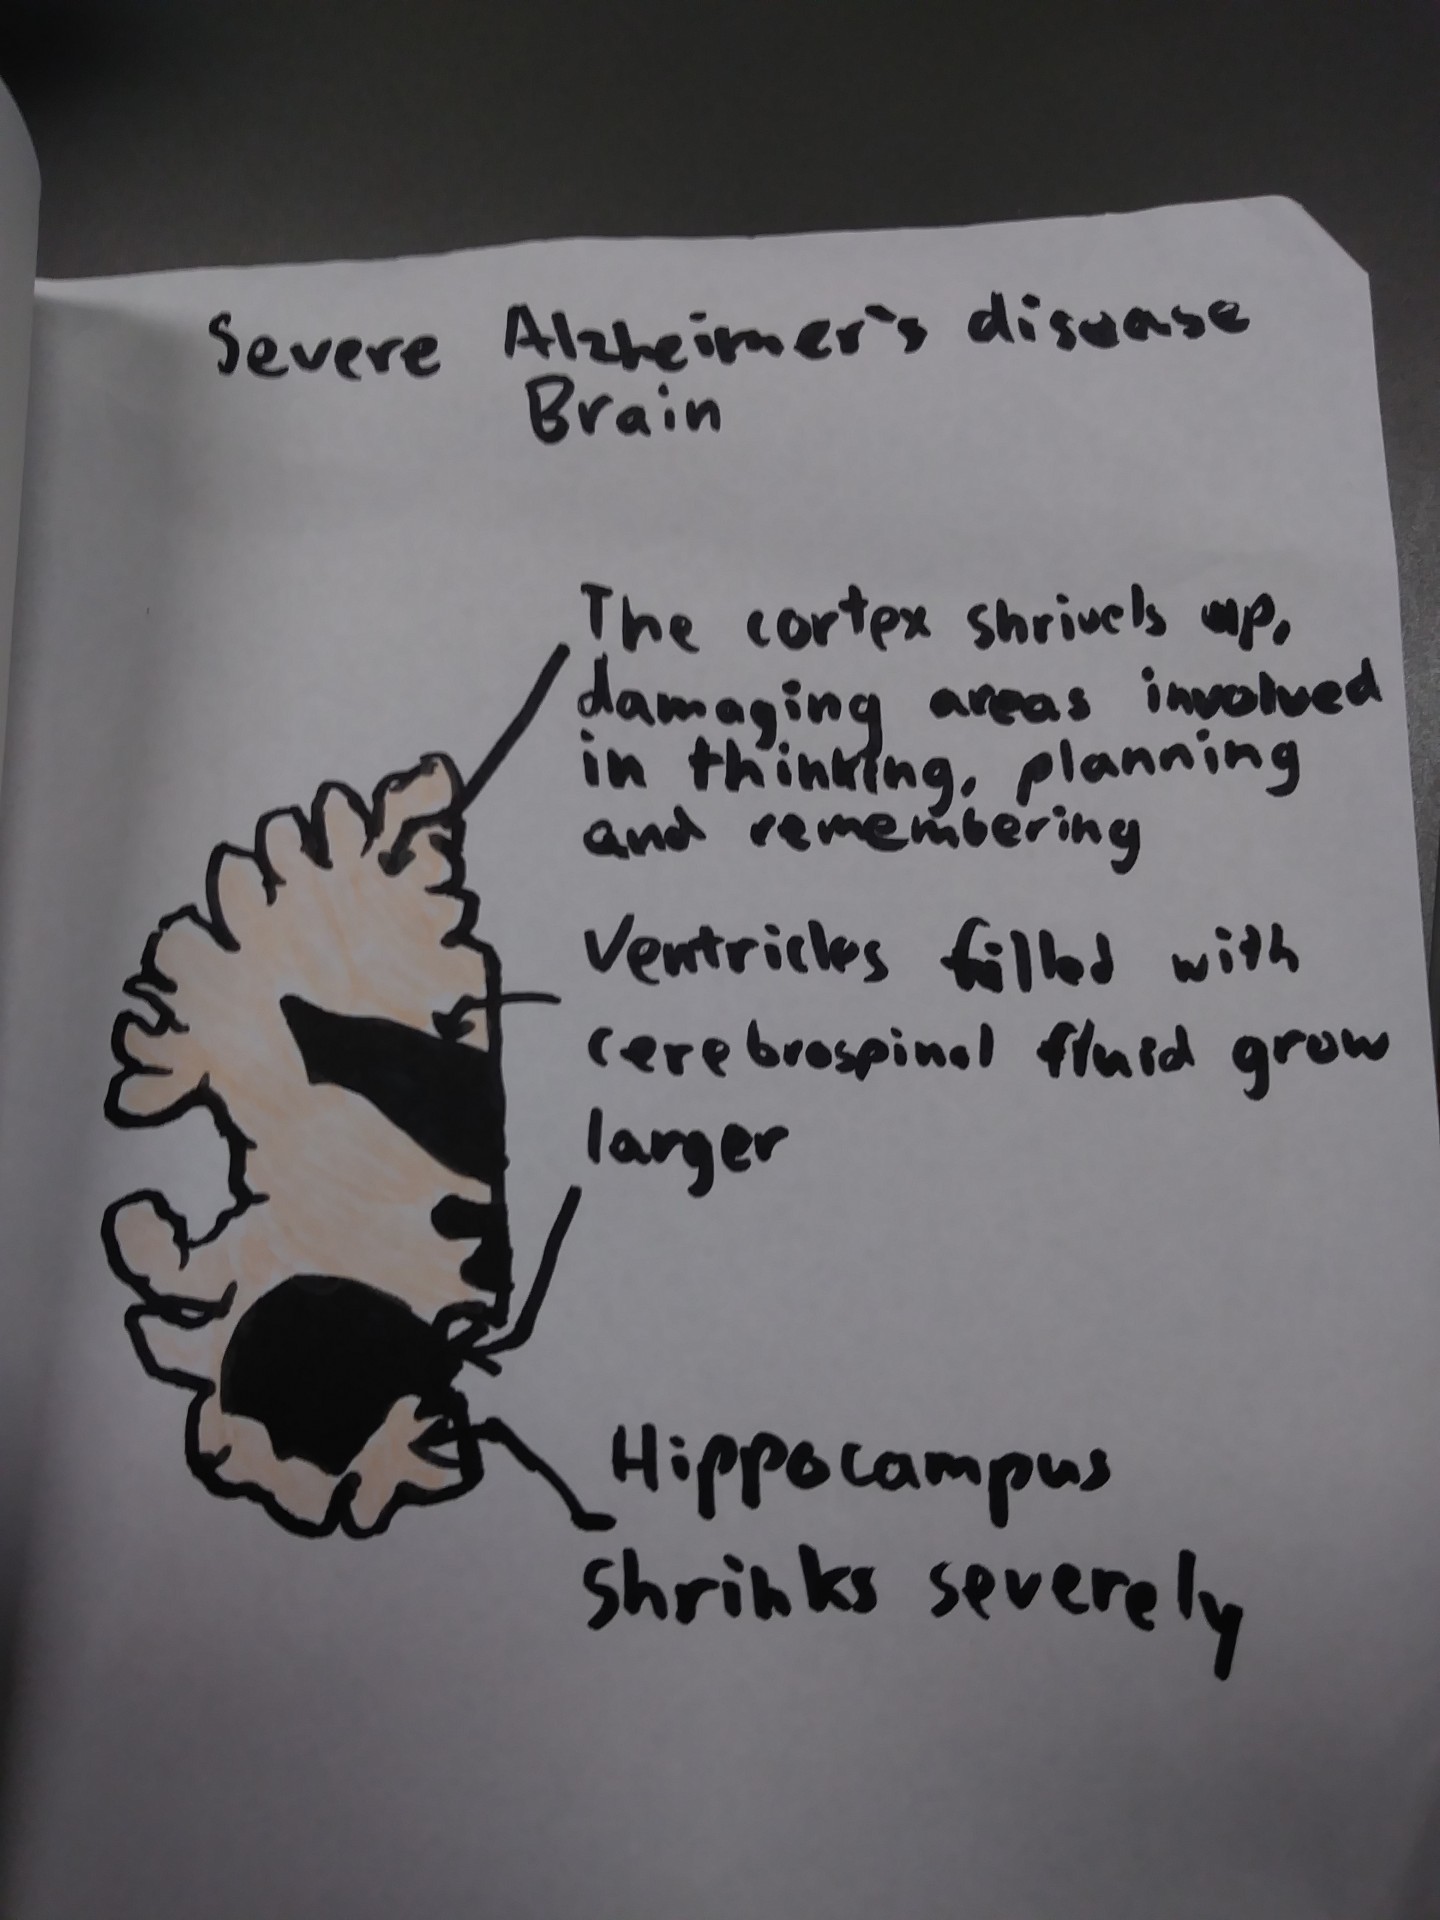 Severe Alzheimer's disease
Brain
The cortex shrivels up,
damaging areas involved
in thinking, planning
and remembering
Ventricles filled with
cerebrospinal fluid grow
larger
Hippocampus
shrinks severely